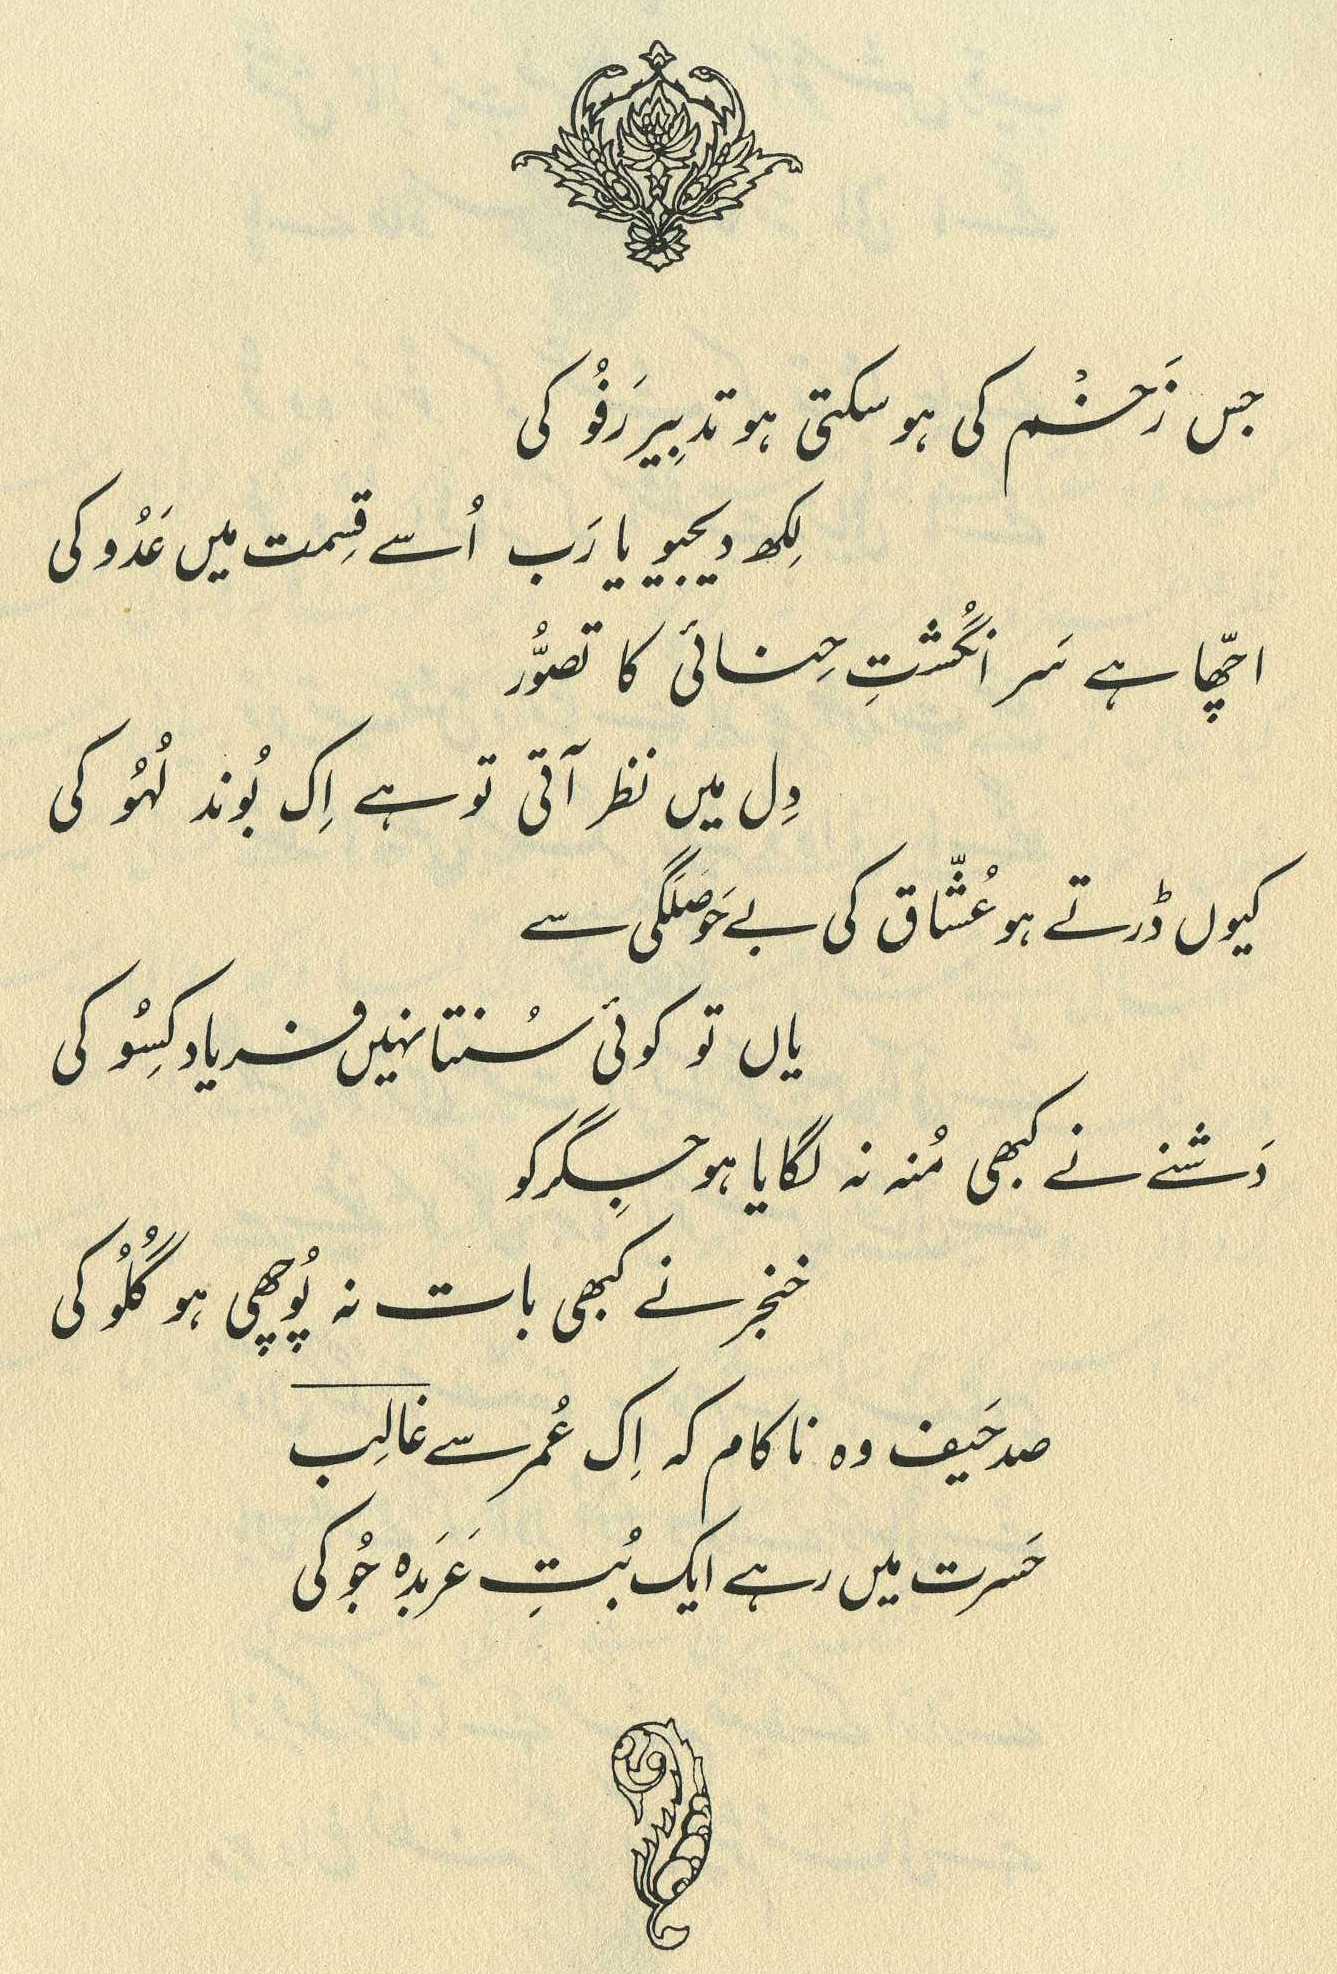 جس زَخْم کی ہو سکتی ہو تدبِیر رَفُو کی
لِکھ دیجیو یا رَب اُسے قِسمت میں عَدُو کی
اچّھا ہے سَر انگُشتِ حِنائی کا تصوُّر
دِل میں نظر آتی تو ہے اِک بُوند لُہُو کی
کیوں ڈرتے ہو عُشّاق کی بے حَوصَلَگی سے
یاں تو کوئی سُنتا نہیں فریاد کِسُو کی
دَشنے نے کبھی مُنہ نہ لگایا ہو جِگر کو
خنجر نے کبھی بات نہ پُوچھی ہو گُلُو کی
صد حَیف وہ ناکام کہ اِک عُمر سے غالِب
حَسرت میں رہے ایک بُتِ عَربَدہ جُو کی